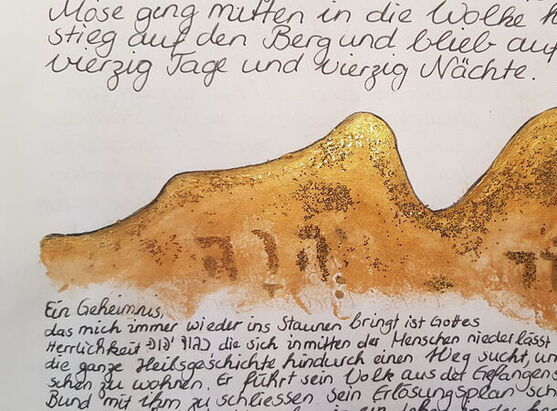 Mose ging mitten in die Wolke
stieg auf den Berg und blieb auf
vierzig Tage und vierzig Nächte.
Ein Geheimnis,
das mich immer wieder ins Staunen bringt ist Gottes
Herrlichkeit die sich inmitten der Menschen niederlässt
die ganze Heilsgeschichte hindurch einen Weg sucht, un
schen zu wohnen. Er führt sein Volk aus der Gefangens
Bund mit ihm zu schliessen. sein Erlösungsplan